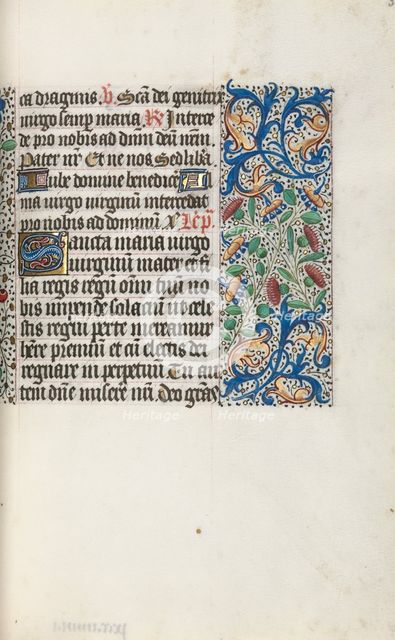 ca dragmis. V. Scã dei genitrix
uirgo semp maria. R. Interce
de pro nobis ad dñm deũ nr̃m
Pater nr̃ Et ne nos Sed liba
Iube domne benedice A
ma uirgo virginũ intercedat
pro nobis ad dominum Lec.
Sancta maria virgo
uirginum mater et fi
lia regis regũ oĩm tuũ no
bis impende solaciũ ut cele
stis regni per te mereamur
hr̃e premiũ et cũ electis dei
regnare in perpetuũ Tu au
tem dñe misere nr̃i Deo grãs
Heritage
Heritage